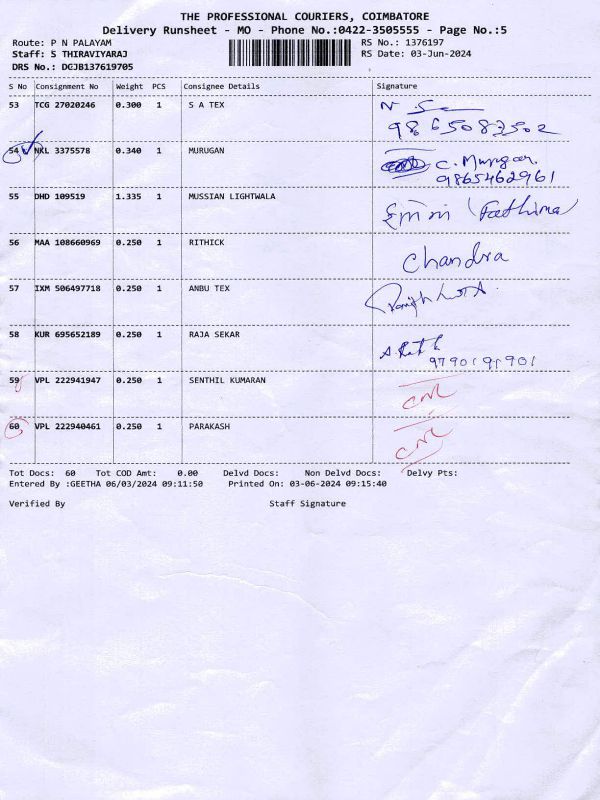 THE PROFESSIONAL COURIERS, COIMBATORE
Delivery Runsheet - MO - Phone No.:0422-3505555 - Page No.:5
Route: P N PALAYAM RS No.: 1376197
Staff: S THIRAVIYARAJ RS Date: 03-Jun-2024
DRS No.: DCJB137619705
S No Consignment No Weight PCS Consignee Details Signature
53 TCG 27020246 0.300 1 S A TEX
9865083502
54 NKL 3375578 0.340 1 MURUGAN C. Murugan.
9865462961
55 DHD 109519 1.335 1 MUSSIAN LIGHTWALA (Fathima)
56 MAA 108660969 0.250 1 RITHICK Chandra
57 IXM 506497718 0.250 1 ANBU TEX
58 KUR 695652189 0.250 1 RAJA SEKAR
9790191901
59 VPL 222941947 0.250 1 SENTHIL KUMARAN
60 VPL 222940461 0.250 1 PARAKASH
Tot Docs: 60 Tot COD Amt: 0.00 Delvd Docs: Non Delvd Docs: Delvy Pts:
Entered By :GEETHA 06/03/2024 09:11:50 Printed On: 03-06-2024 09:15:40
Verified By Staff Signature